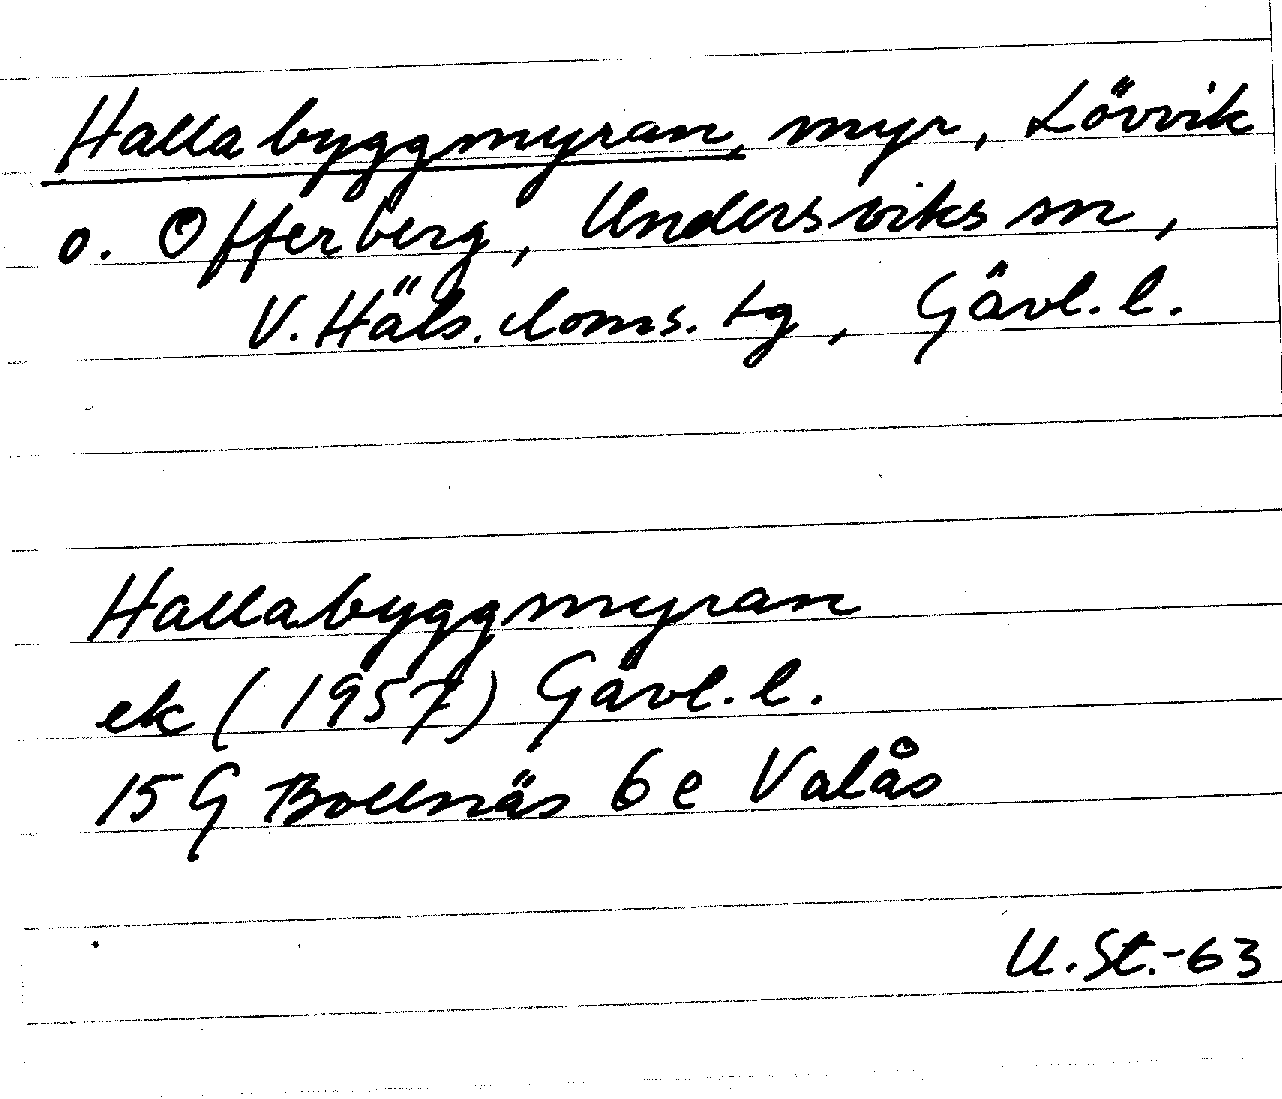 Hallabyggmyran, myr, Lövvik
o. Offerberg, Undersviks sn,
V. Häls. doms. tg, Gävl. l.
Hallabyggmyran
ek (1957) Gävl. l.
15 G Bollnäs 6 e Valås
U. St. -63